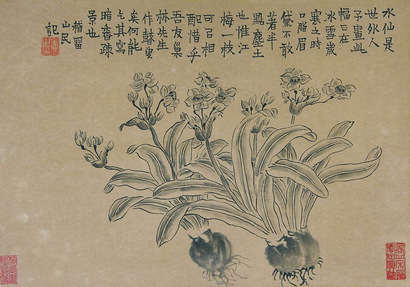 水仙是
世外人
予畫此
幅正在
冰雪歲
寒之時
口脂眉
黛不敢
著半
點塵土
也惟江
梅一枝
可与相
配惜乎
吾友巢
林先生
作瞽叟
矣何能
乞其寫
暗香疎
景也
稽留
山民
記